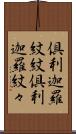 倶利迦羅
紋紋倶利
迦羅紋々